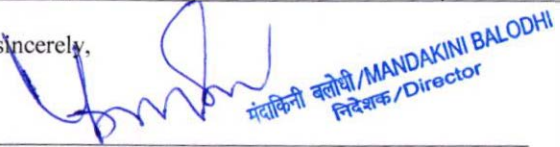 sincerely,
मंदाकिनी बलोधी/MANDAKINI BALODHI
निदेशक/Director